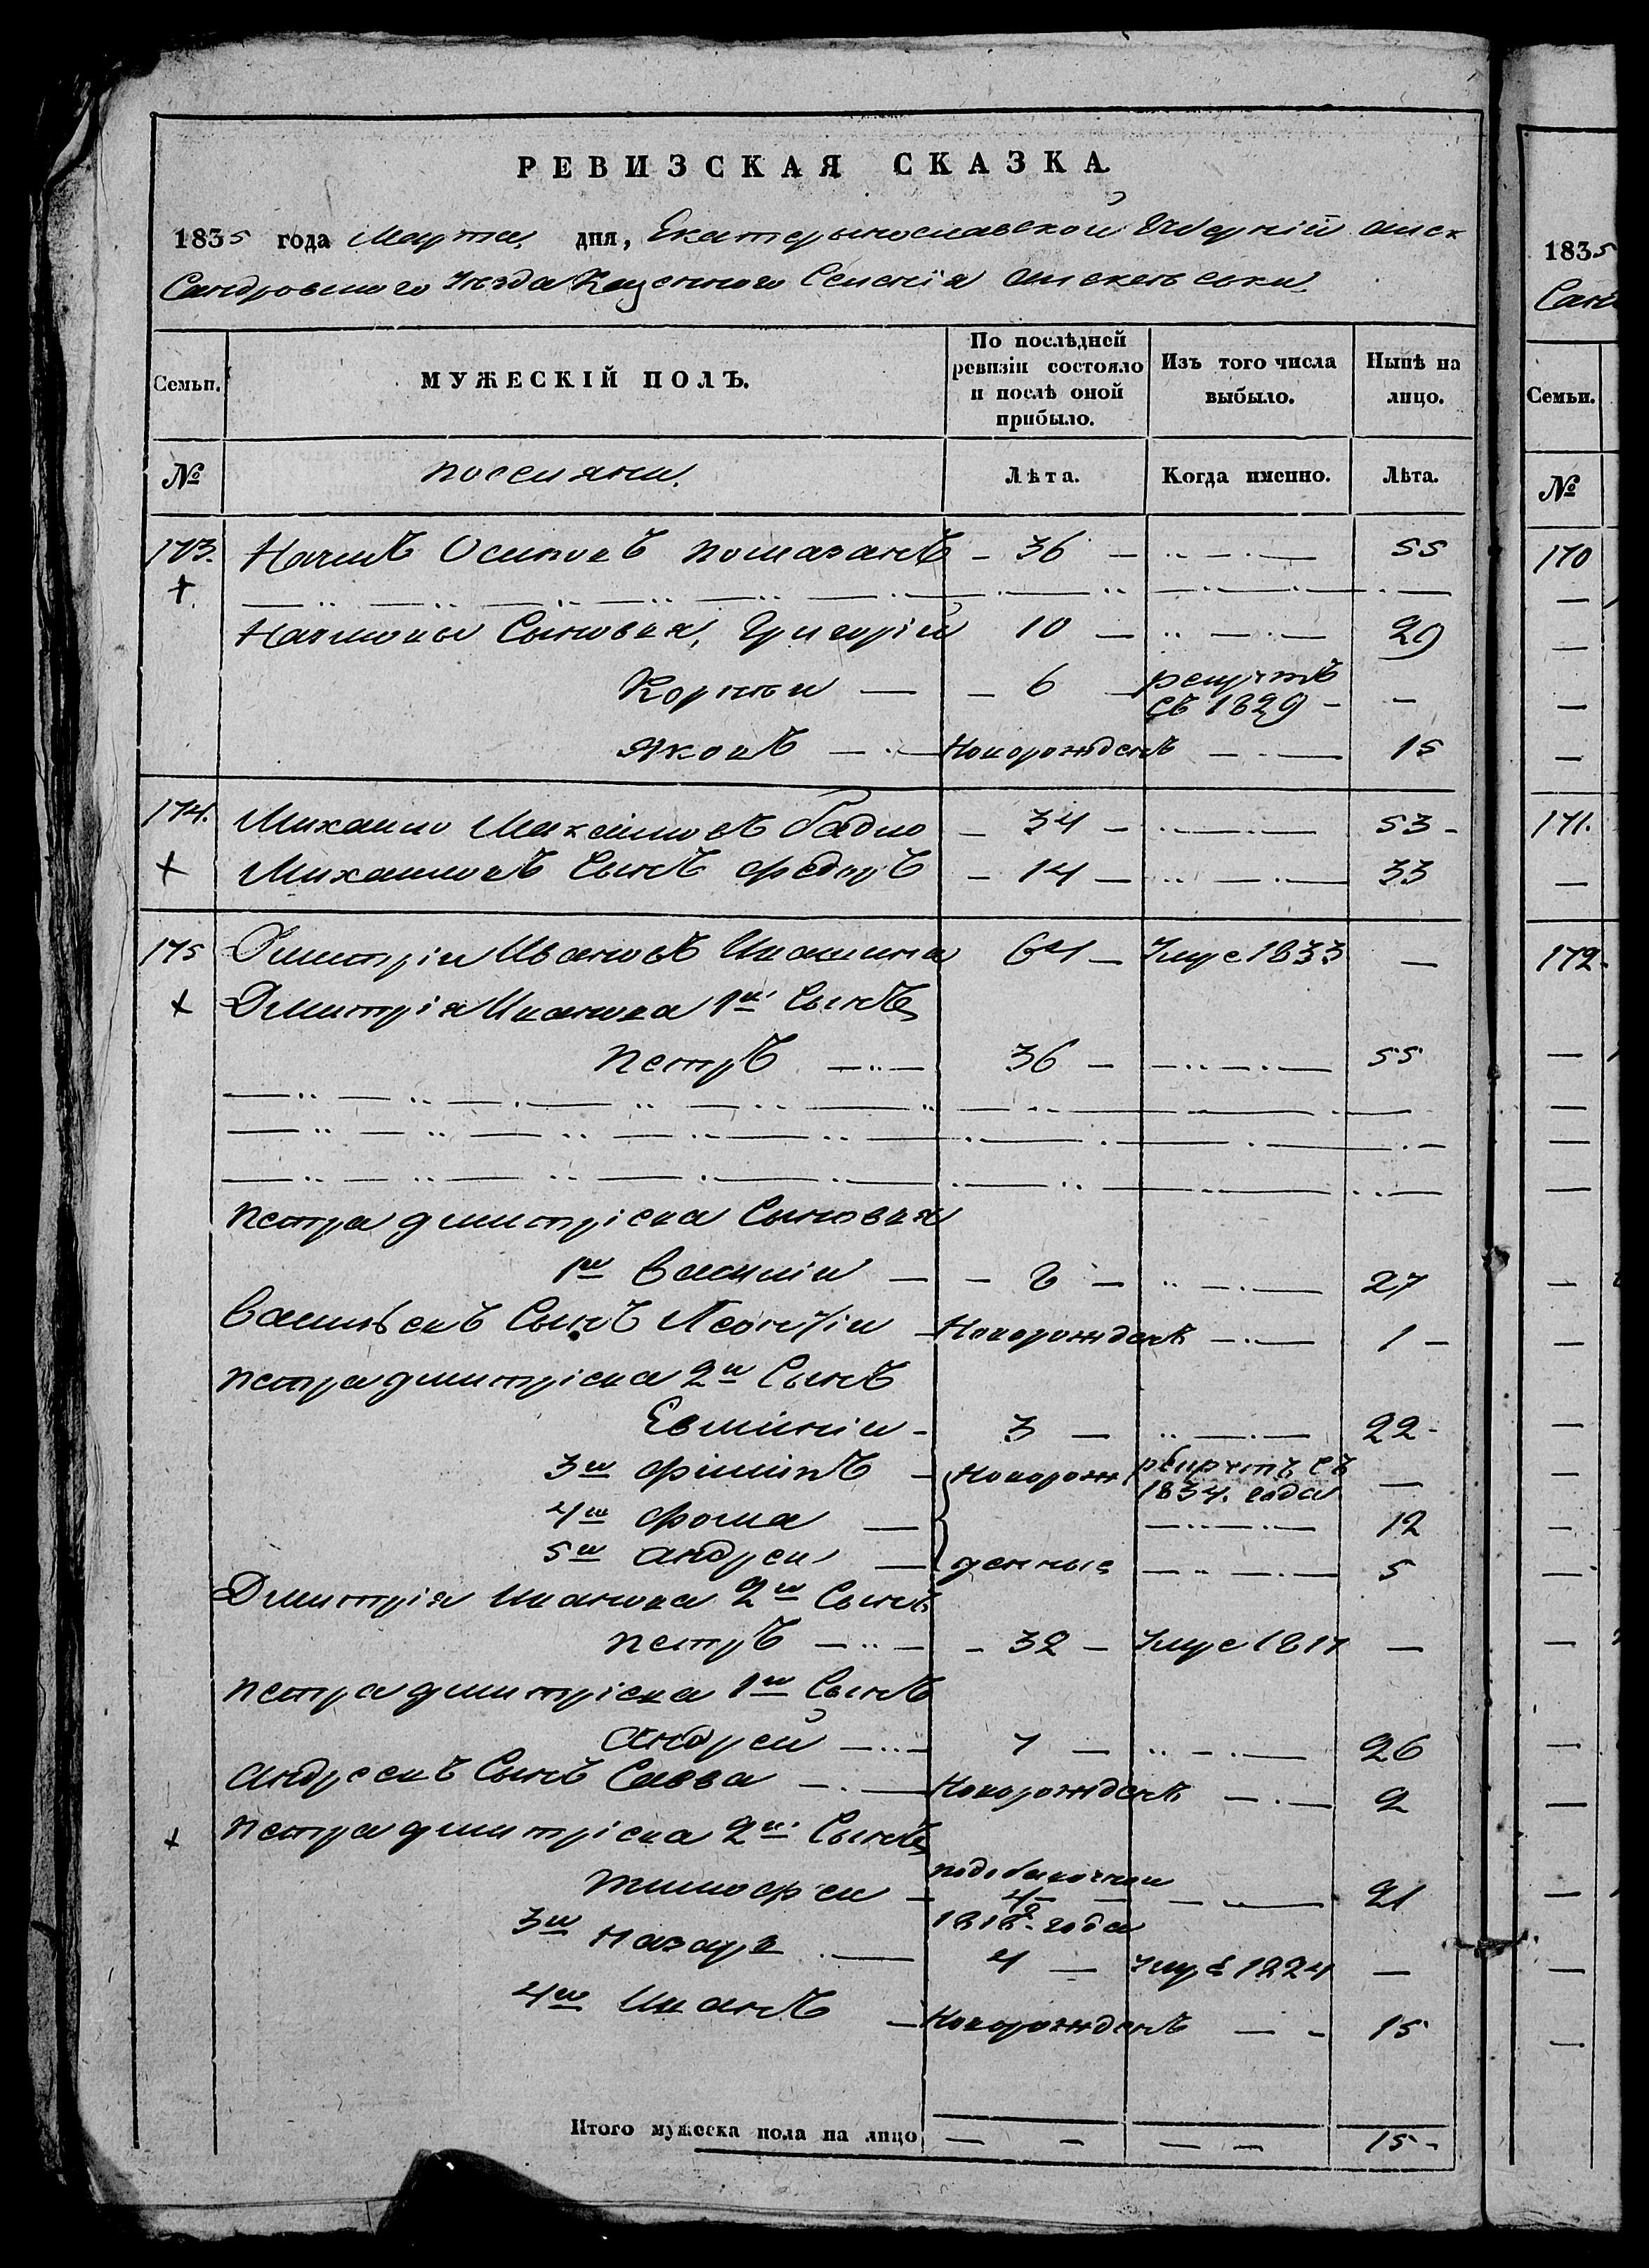 РЕВИЗСКАЯ СКАЗКА
1835 года Марта дня, Екатеринославской Губерніи Алек
Сандровского Уезда Казенного Селенія
Семьи. МУЖЕСКІЙ ПОЛЪ. По послѣдней ревизіи состояло и послѣ оной прибыло. Изъ того числа выбыло. Нынѣ на лицо.
№ поселяни. Лѣта. Когда именно. Лѣта.
173. Наумъ Осиповъ - 36 - 55
Наумовы Сыновья, Григорій 10 - 29
Корній - - 6 - рекрутъ
съ 1829 - -
Яковъ - Новорожденъ - 15
174. Михаило Максимовъ бадло - 34 - 53 -
Михаиловъ Сынъ Федоръ - 14 - 33
175 Дмитріи Ивановъ 64 - Умре 1833 -
Дмитрія Иванова 1й Сынъ
Петръ 36 - 55
Петра дмитріева Сыновья
1й Василіи - - 8 - 27
Васильевъ Сынъ Леонтіи - Новорожденъ - 1 -
Петра дмитріева 2й Сынъ
Евминіи - 3 - 22 -
3й Филипъ - Новорож рекрутъ съ
1834. года -
4й Фома - 12
5й Андреи - денные 5
Дмитрія Иванова 2й Сынъ
Петръ - 32 - Умре 1817 -
Петра дмитріева 1й Сынъ
Андрей 7 - 26
Андреевъ Сынъ Савва - Новорожденъ - 2
Петра дмитріева 2й Сынъ
Тимофеи - 21
1818 - года
3й Назаръ 4 - Умре 1824 -
4й Иванъ - Новорожденъ - 15
Итого мужеска пола на лицо - - - - 15 -
1835
Санд
Семьи.
№
170
171.
172.